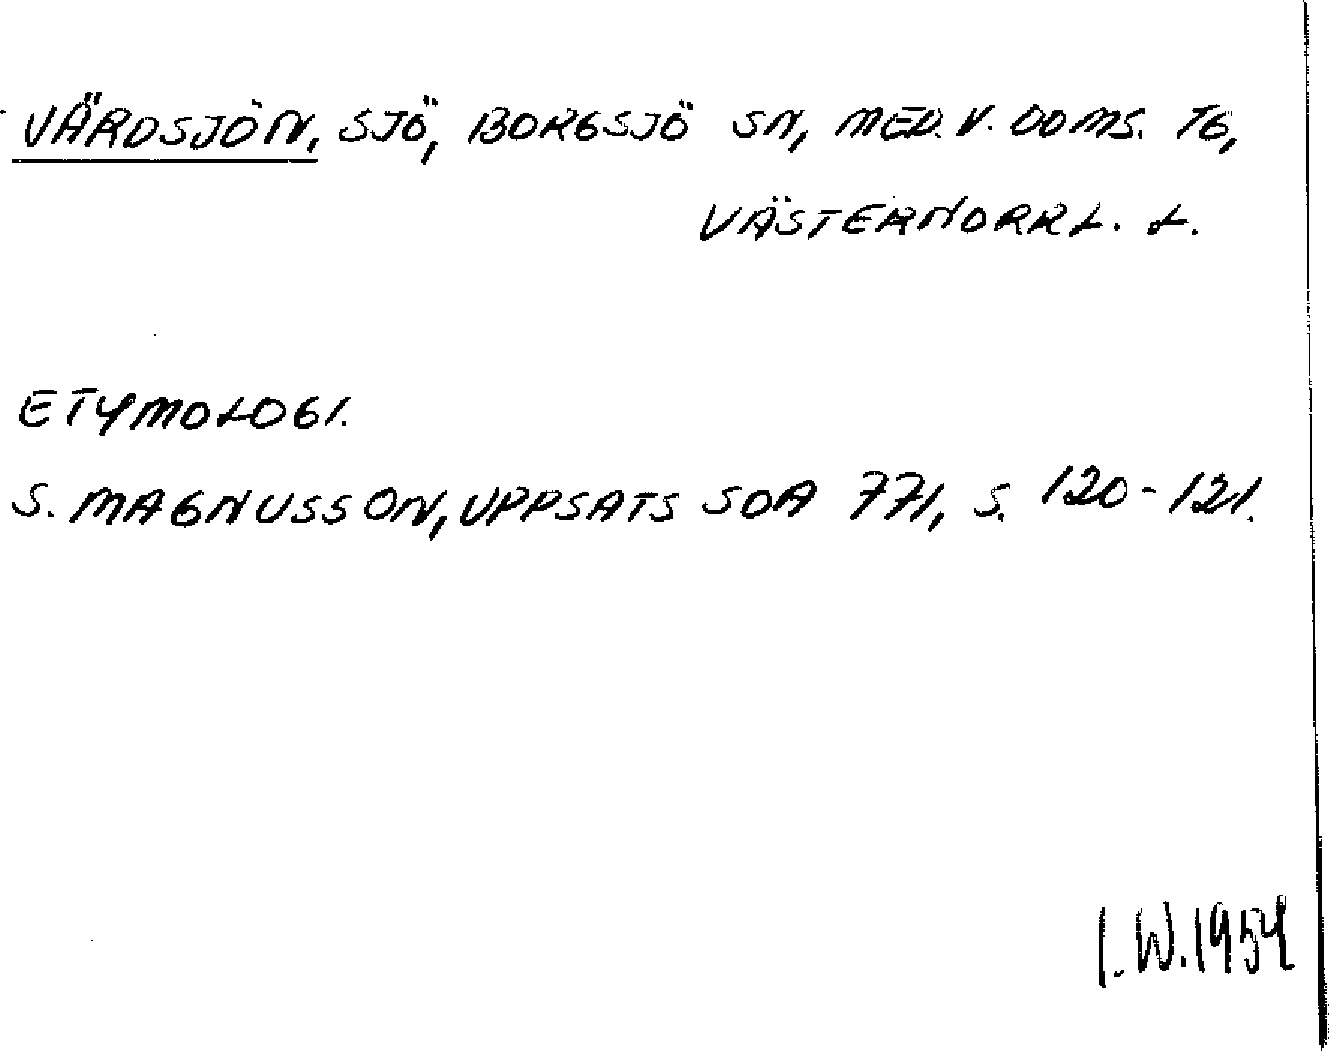 VÄRDSJÖN, SJÖ, BORGSJÖ SN, MED. V. DOMS. TG,
VÄSTERNORRL. L.
ETYMOLOGI.
S. MAGNUSSON, UPPSATS SOA 771, S. 120-121.
I. W. 1954